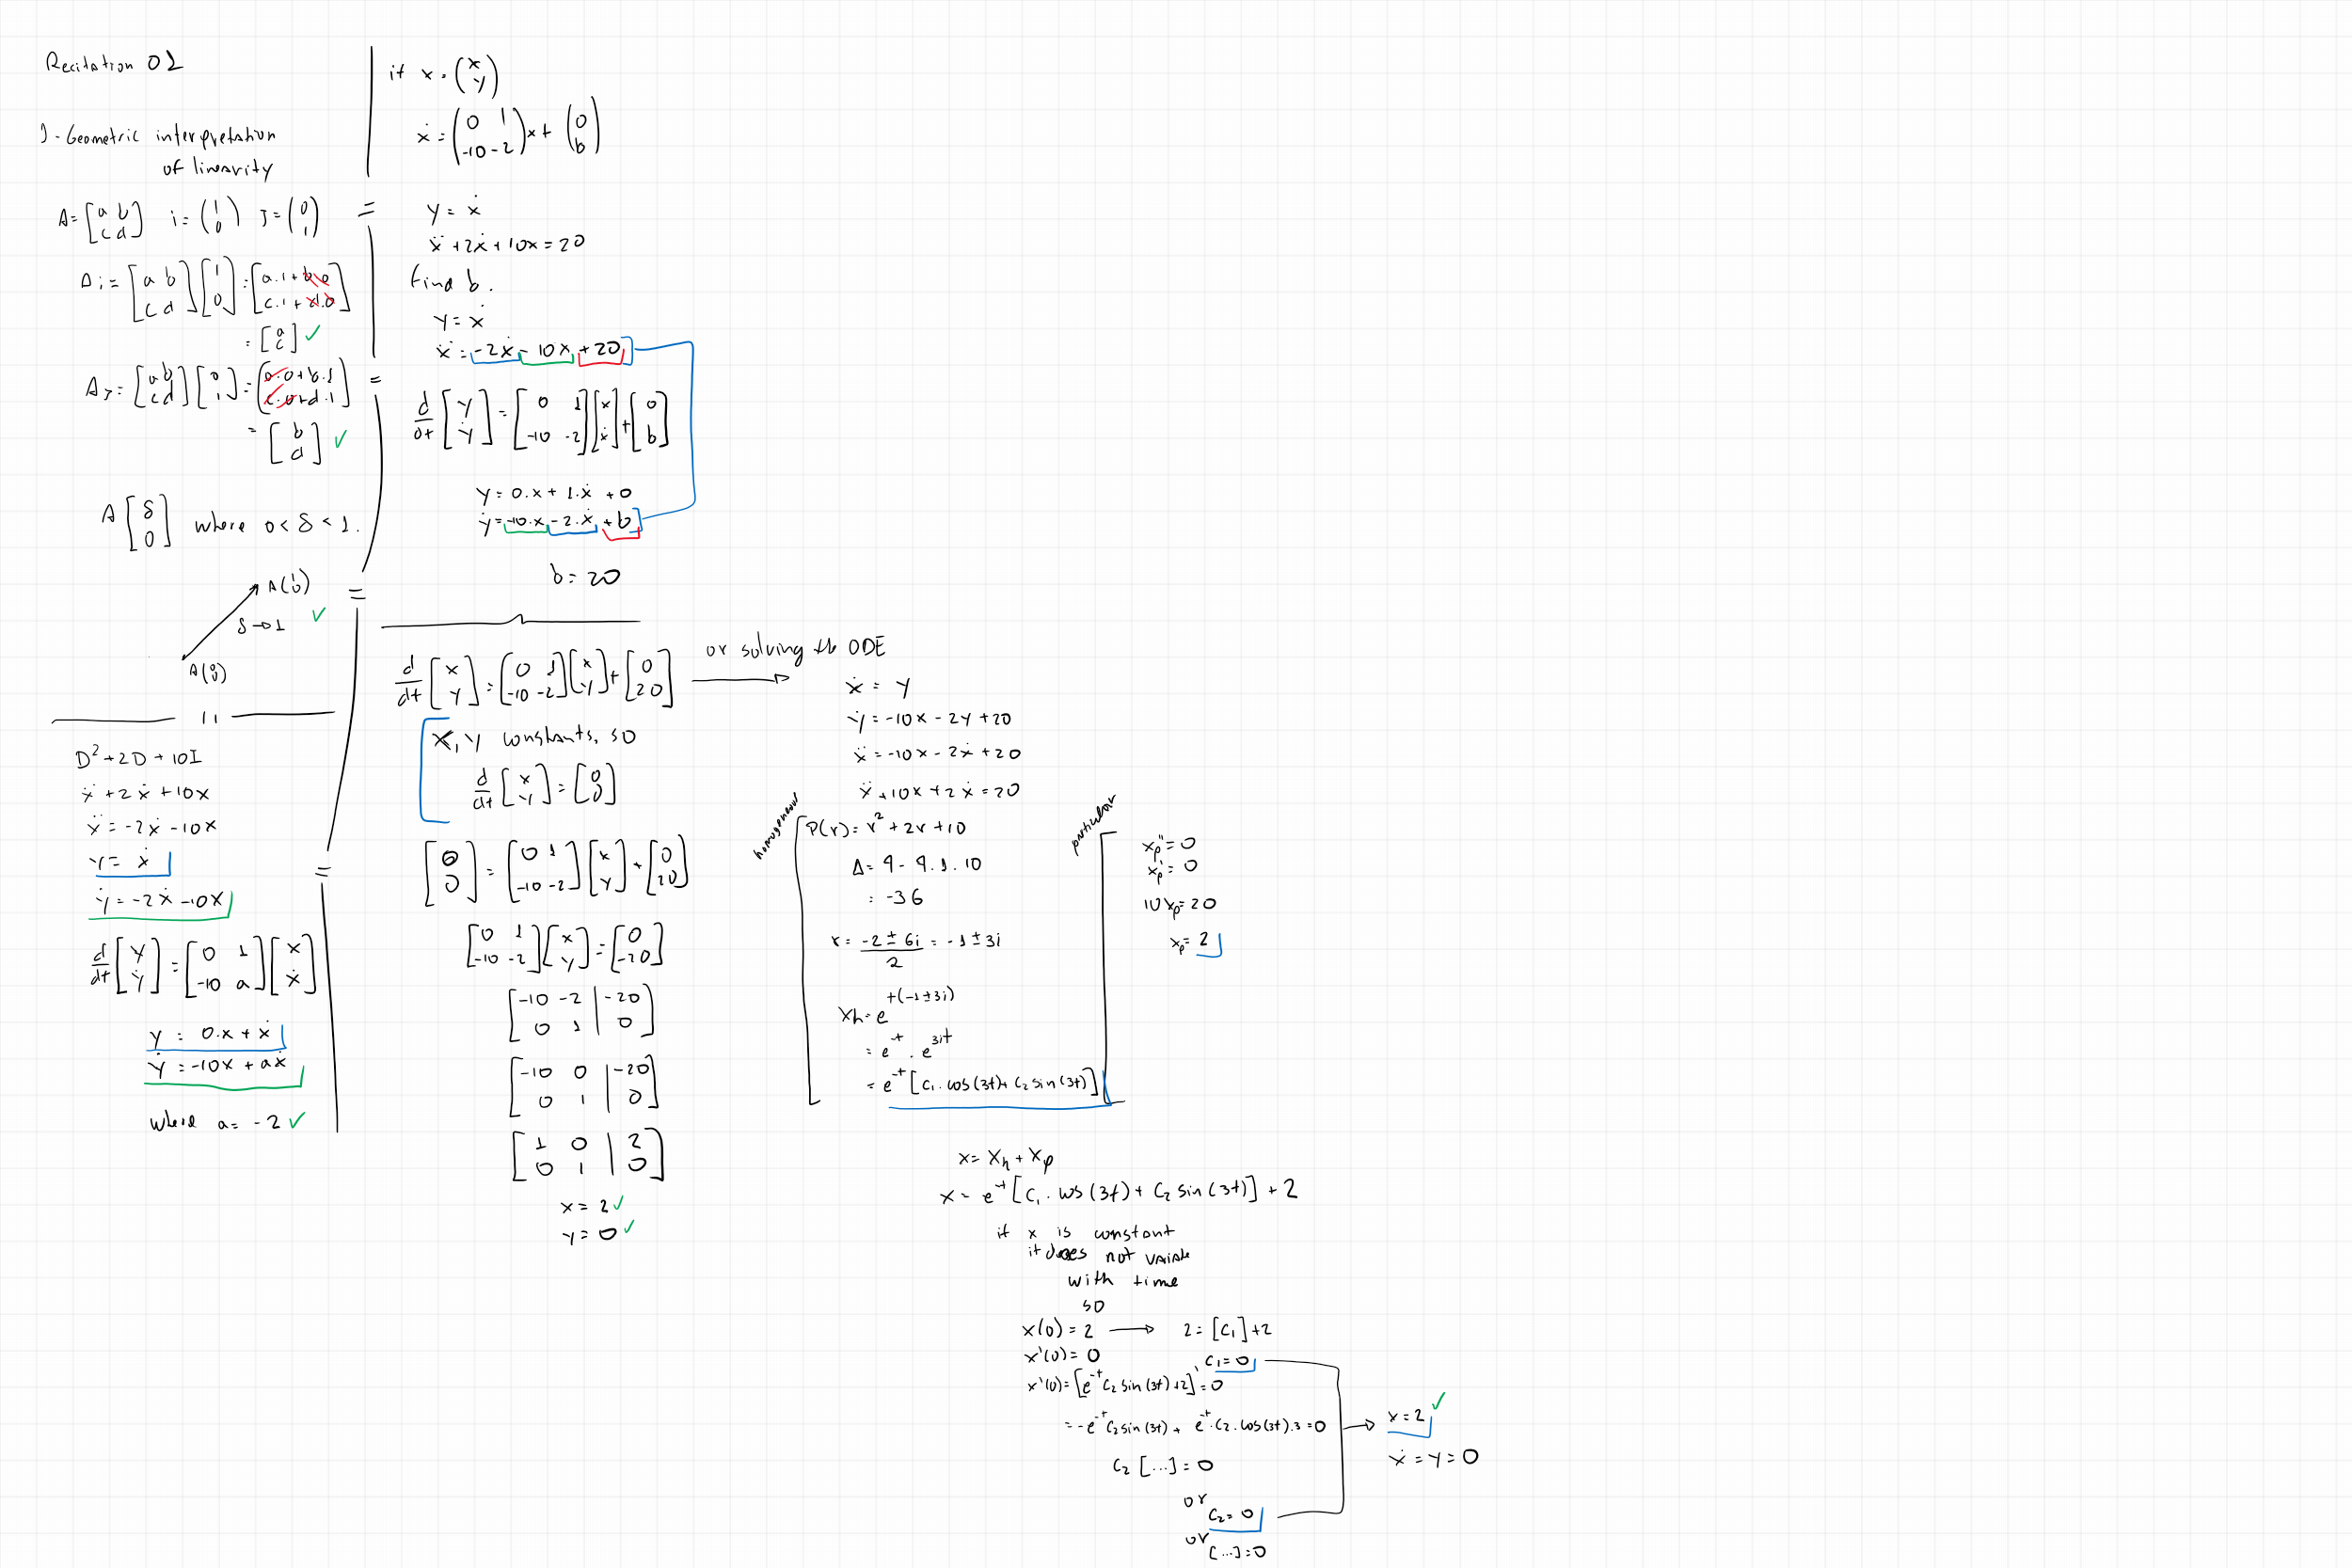 Recitation 01
1 - Geometric interpretation
of linearity
A = [a b; c d] i = (1; 0) J = (0; 1)
Ai = [a b; c d] [1; 0] = [a.1 + b.0; c.1 + d.0]
= [a; c] ✓
AJ = [a b; c d] [0; 1] = [a.0 + b.1; c.0 + d.1]
= [b; d] ✓
A [δ; 0] where 0 < δ < 1.
A(1; 0)
δ → 1 ✓
A(0; 0)
D² + 2D + 10I
ẍ + 2ẋ + 10x
ẍ = -2ẋ - 10x
y = ẋ
ẏ = -2ẋ - 10x
d/dt [y; ẏ] = [0 1; -10 a] [x; ẋ]
y = 0.x + ẋ
ẏ = -10x + aẋ
where a = -2 ✓
if x = (x; y)
ẋ = (0 1; -10 -2) x + (0; b)
y = ẋ
ẍ + 2ẋ + 10x = 20
find b.
y = ẋ
ẍ = -2ẋ - 10x + 20
d/dt [y; ẏ] = [0 1; -10 -2] [x; ẋ] + [0; b]
y = 0.x + 1.ẋ + 0
ẏ = -10.x - 2.ẋ + b
b = 20
d/dt [x; y] = [0 1; -10 -2] [x; y] + [0; 20]
x, y constants, so
d/dt [x; y] = [0; 0]
[0; 0] = [0 1; -10 -2] [x; y] + [0; 20]
[0 1; -10 -2] [x; y] = [0; -20]
[-10 -2 | -20; 0 1 | 0]
[-10 0 | -20; 0 1 | 0]
[1 0 | 2; 0 1 | 0]
x = 2 ✓
y = 0 ✓
or solving the ODE
ẋ = y
ẏ = -10x - 2y + 20
ẍ = -10x - 2ẋ + 20
ẍ + 10x + 2ẋ = 20
homogeneous
P(r) = r² + 2r + 10
Δ = 4 - 4.1.10
= -36
r = (-2 ± 6i)/2 = -1 ± 3i
xh = e^t(-1±3i)
= e^-t . e^3it
= e^-t [c₁.cos(3t) + c₂ sin(3t)]
particular
xp'' = 0
xp' = 0
10xp = 20
xp = 2
x = xh + xp
x = e^-t [c₁.cos(3t) + c₂ sin(3t)] + 2
if x is constant
it does not variate
with time
so
x(0) = 2 → 2 = [c₁] + 2
x'(0) = 0
c₁ = 0
x'(0) = [e^-t c₂ sin(3t) + 2]' = 0
= -e^-t c₂ sin(3t) + e^-t.c₂.cos(3t).3 = 0
c₂ [...] = 0
or
c₂ = 0
or
[...] = 0
x = 2 ✓
ẋ = y = 0